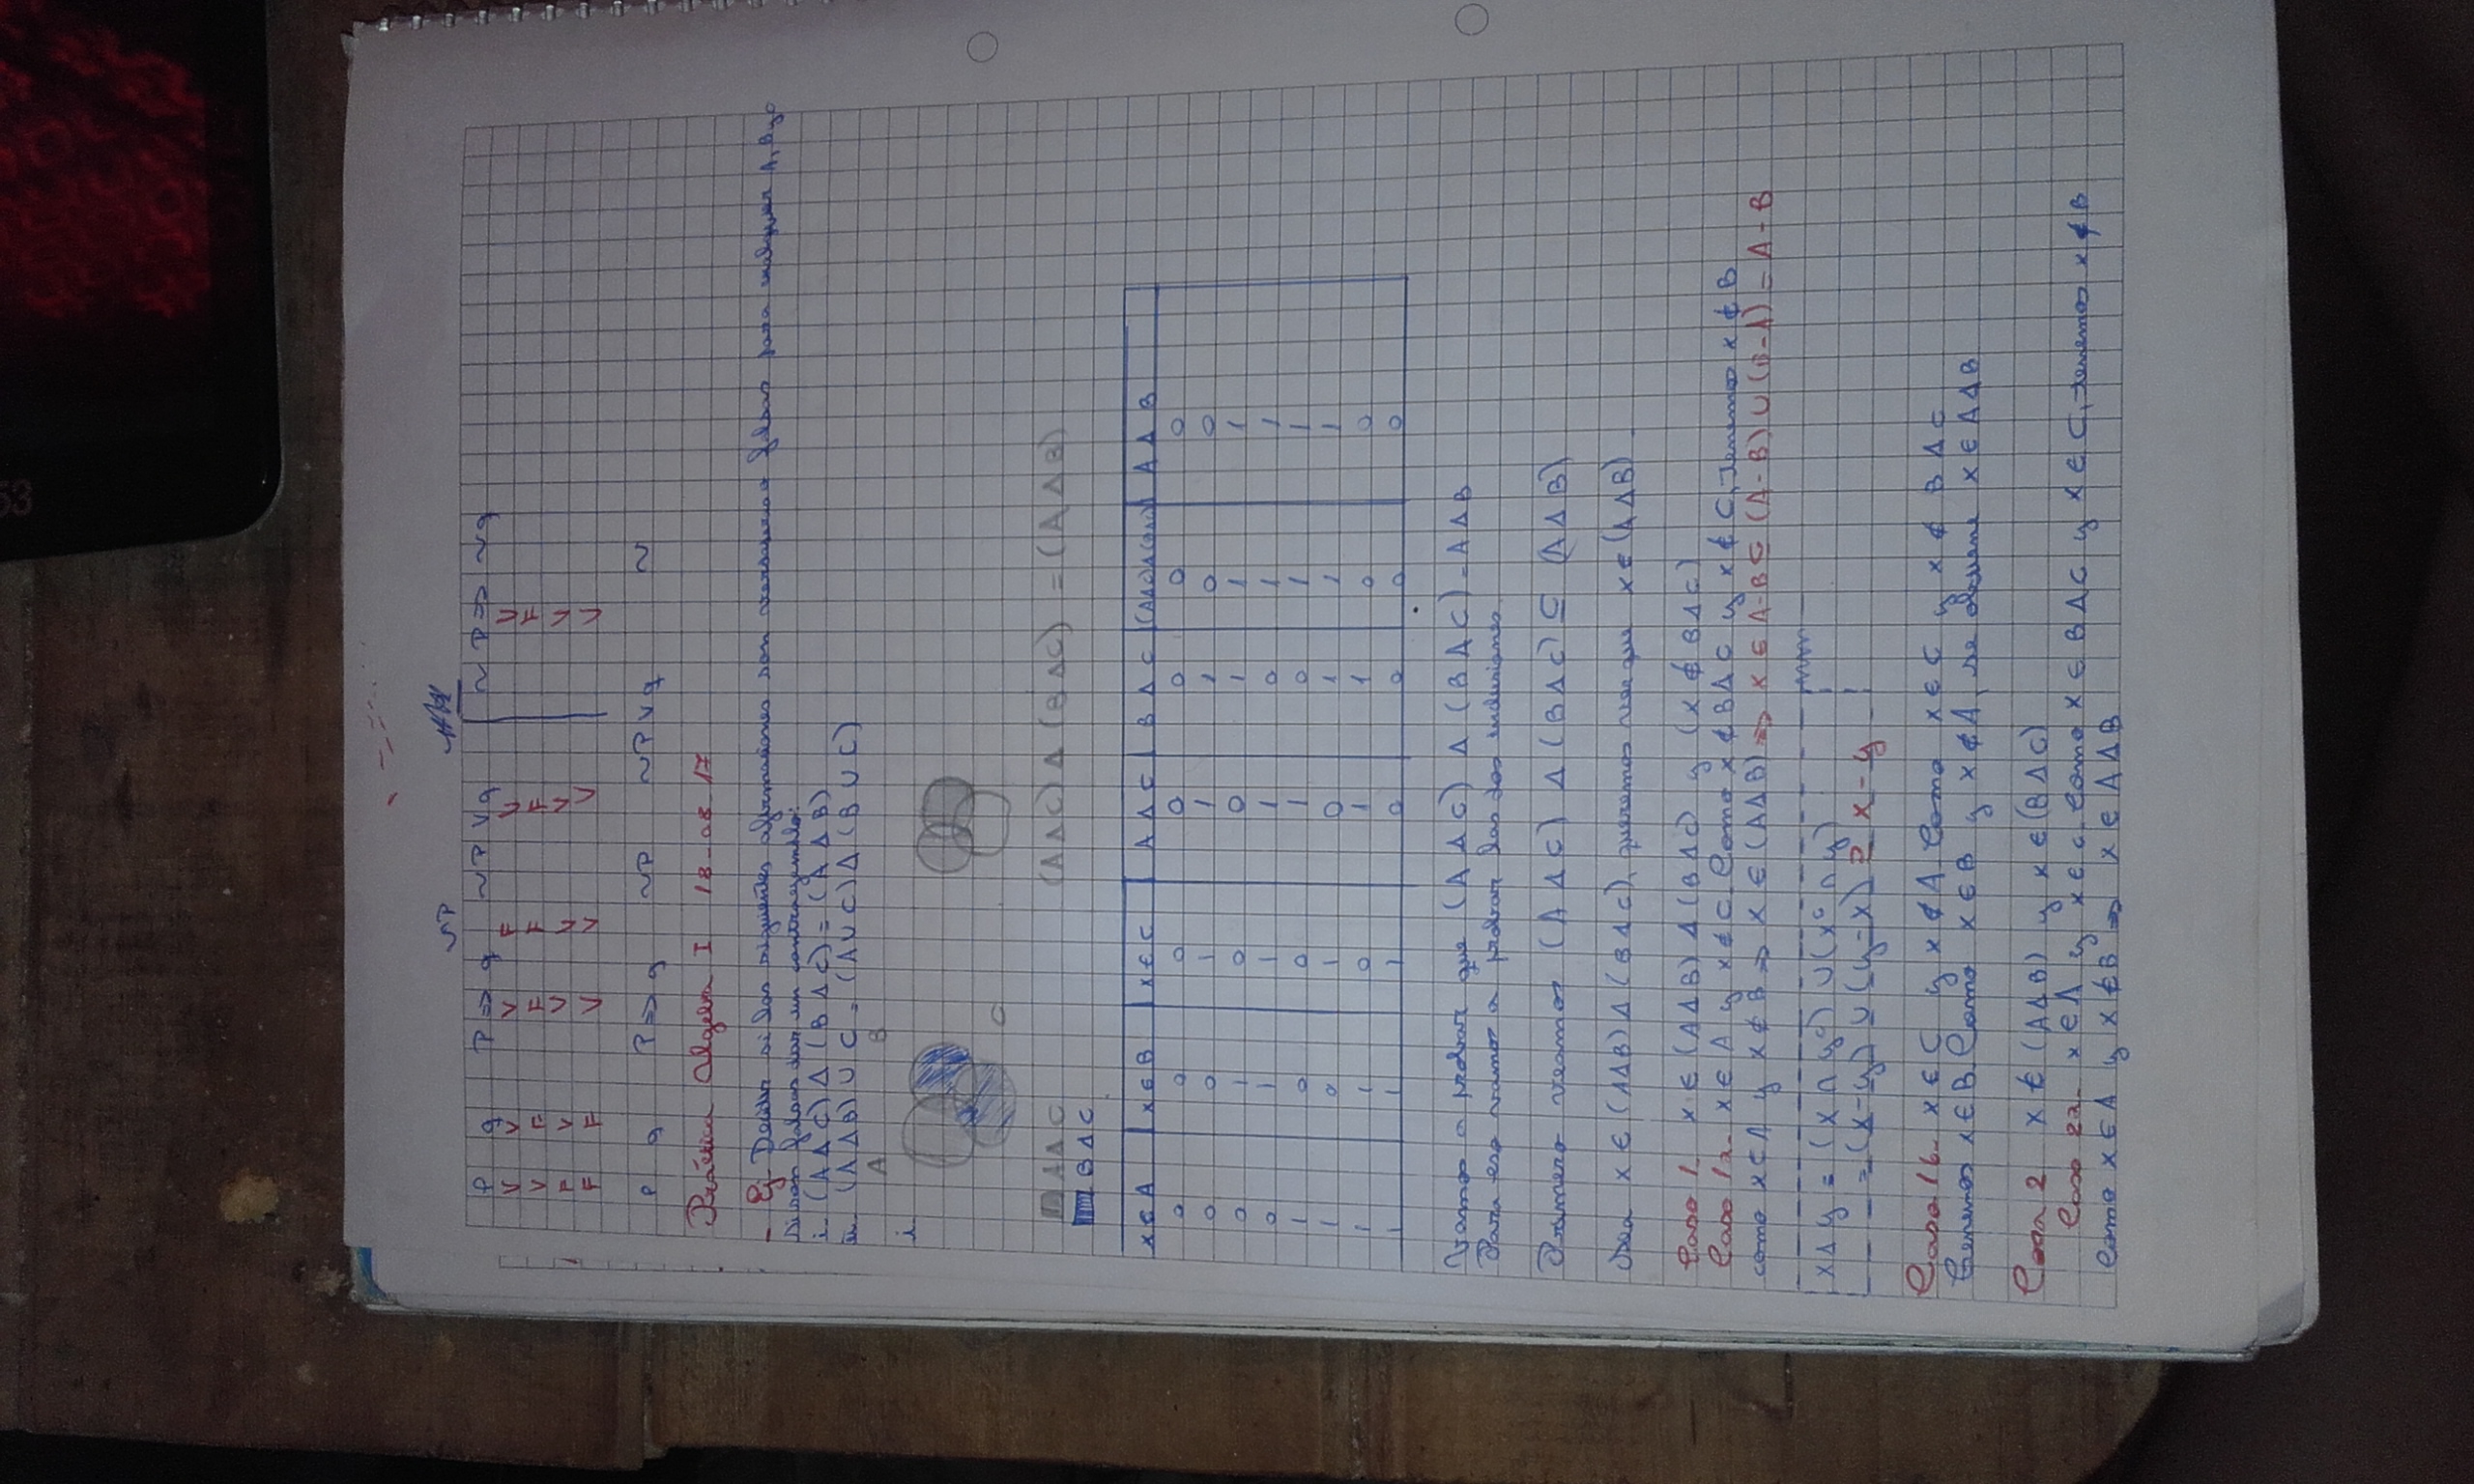 53
~P
P q P => q ~P v q ~ P => ~q
V V V F V V
V F F F F F
F V V V V V
F F V V V V
P q P => q ~P ~P v q ~
Práctica Algebra I 18-08-17
- Ej Decidir si las siguientes afirmaciones son verdaderas o falsas para cualquier A, B y C
si son falsas dar un contraejemplo:
i. (A Δ C) Δ (B Δ C) = (A Δ B)
ii. (A Δ B) ∪ C = (A ∪ C) Δ (B ∪ C)
A B
i.
C
A Δ C (A Δ C) Δ (B Δ C) = (A Δ B)
B Δ C
x ∈ A x ∈ B x ∈ C A Δ C B Δ C (AΔC)Δ(BΔC) A Δ B
0 0 0 0 0 0 0
0 0 1 1 1 0 0
0 1 0 0 1 1 1
0 1 1 1 0 1 1
1 0 0 1 0 1 1
1 0 1 0 1 1 1
1 1 0 1 1 0 0
1 1 1 0 0 0 0
Vamos a probar que (A Δ C) Δ (B Δ C) = A Δ B
Para eso vamos a probar las dos inclusiones.
Primero veamos (A Δ C) Δ (B Δ C) ⊆ (A Δ B)
Sea x ∈ (A Δ B) Δ (B Δ C), queremos ver que x ∈ (A Δ B).
Caso 1. x ∈ (A Δ B) Δ (B Δ C) y (x ∉ B Δ C)
Caso 1a. x ∈ A y x ∉ C. Como x ∉ B Δ C y x ∉ C, tenemos x ∉ B
como x ∈ A y x ∉ B => x ∈ (A Δ B) => x ∈ A-B ⊆ (A-B) ∪ (B-A) = A - B
x Δ y = (x ∩ yᶜ) ∪ (xᶜ ∩ y)
= (x-y) ∪ (y-x) ⊇ x - y
Caso 1b. x ∈ C y x ∉ A. Como x ∈ C y x ∉ B Δ C
tenemos x ∈ B. Como x ∈ B y x ∉ A, se obtiene x ∈ A Δ B
Caso 2 x ∉ (A Δ B) y x ∈ (B Δ C)
Caso 2a. x ∈ A y x ∈ C. Como x ∈ B Δ C y x ∈ C, tenemos x ∉ B
Como x ∈ A y x ∉ B => x ∈ A Δ B